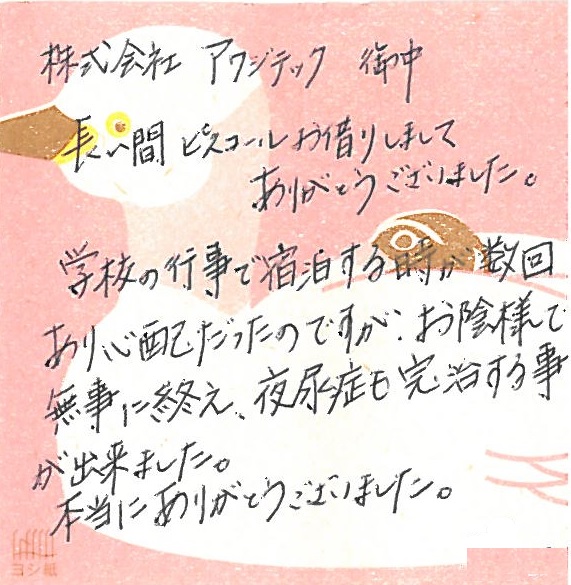 株式会社 アワジテック 御中
長い間 ピスコールお借りしまして
ありがとうございました。
学校の行事で宿泊する時が数回
あり心配だったのですが、お陰様で
無事に終え、夜尿症も完治する事
が出来ました。
本当にありがとうございました。
ヨシ紙